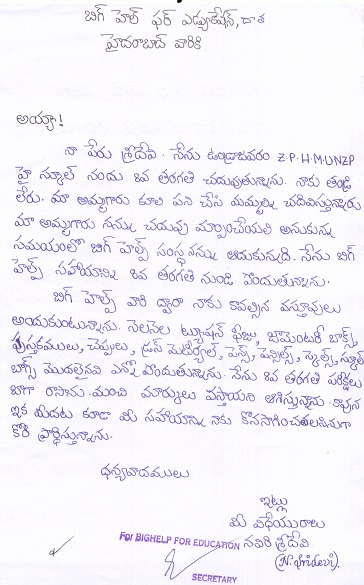 బిగ్ హెల్ప్ ఫర్ ఎడ్యుకేషన్, దాత
హైదరాబాద్ వారికి
అయ్యా!
నా పేరు శ్రీదేవి. నేను ఉండ్రాజవరం Z.P.H.M.UNZP
హై స్కూల్ నందు 8వ తరగతి చదువుతున్నాను. నాకు తండ్రి
లేరు. మా అమ్మగారు కూలి పని చేసి మమ్మల్ని చదివిస్తున్నారు
మా అమ్మగారు నన్ను చదువు మాన్పించేయాలి అనుకున్న
సమయంలో బిగ్ హెల్ప్ సంస్థ నన్ను ఆదుకున్నది. నేను బిగ్
హెల్ప్ సహాయాన్ని 8వ తరగతి నుండి పొందుతున్నాను.
బిగ్ హెల్ప్ వారి ద్వారా నాకు కావల్సిన వస్తువులు
అందుకుంటున్నాను. నెలనెల ట్యూషన్ ఫీజు, జామెంటరీ బాక్స్,
పుస్తకములు, చెప్పులు, డ్రస్ మెటీరియల్, పెన్స్, పెన్సిల్స్, స్కేల్స్, స్కూల్
బాగ్స్ మొదలైనవి ఎన్నో పొందుతున్నాను. నేను 8వ తరగతి పరీక్షలు
బాగా రాసాను. మంచి మార్కులు వస్తాయని ఆశిస్తున్నాను. కావున
ఇక మీదట కూడా మీ సహాయాన్ని నాకు కొనసాగించవలసినదిగా
కోరి ప్రార్థిస్తున్నాను.
ధన్యవాదములు
ఇట్లు
మీ విధేయురాలు
For BIGHELP FOR EDUCATION నవిరి శ్రీదేవి
(N. Sridevi).
SECRETARY